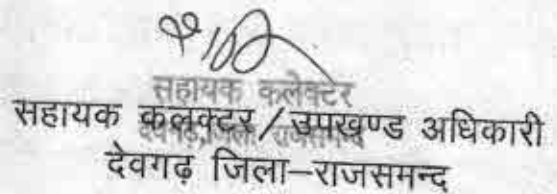 सहायक कलेक्टर
सहायक कलक्टर/उपखण्ड अधिकारी
देवगढ़ जिला–राजसमन्द